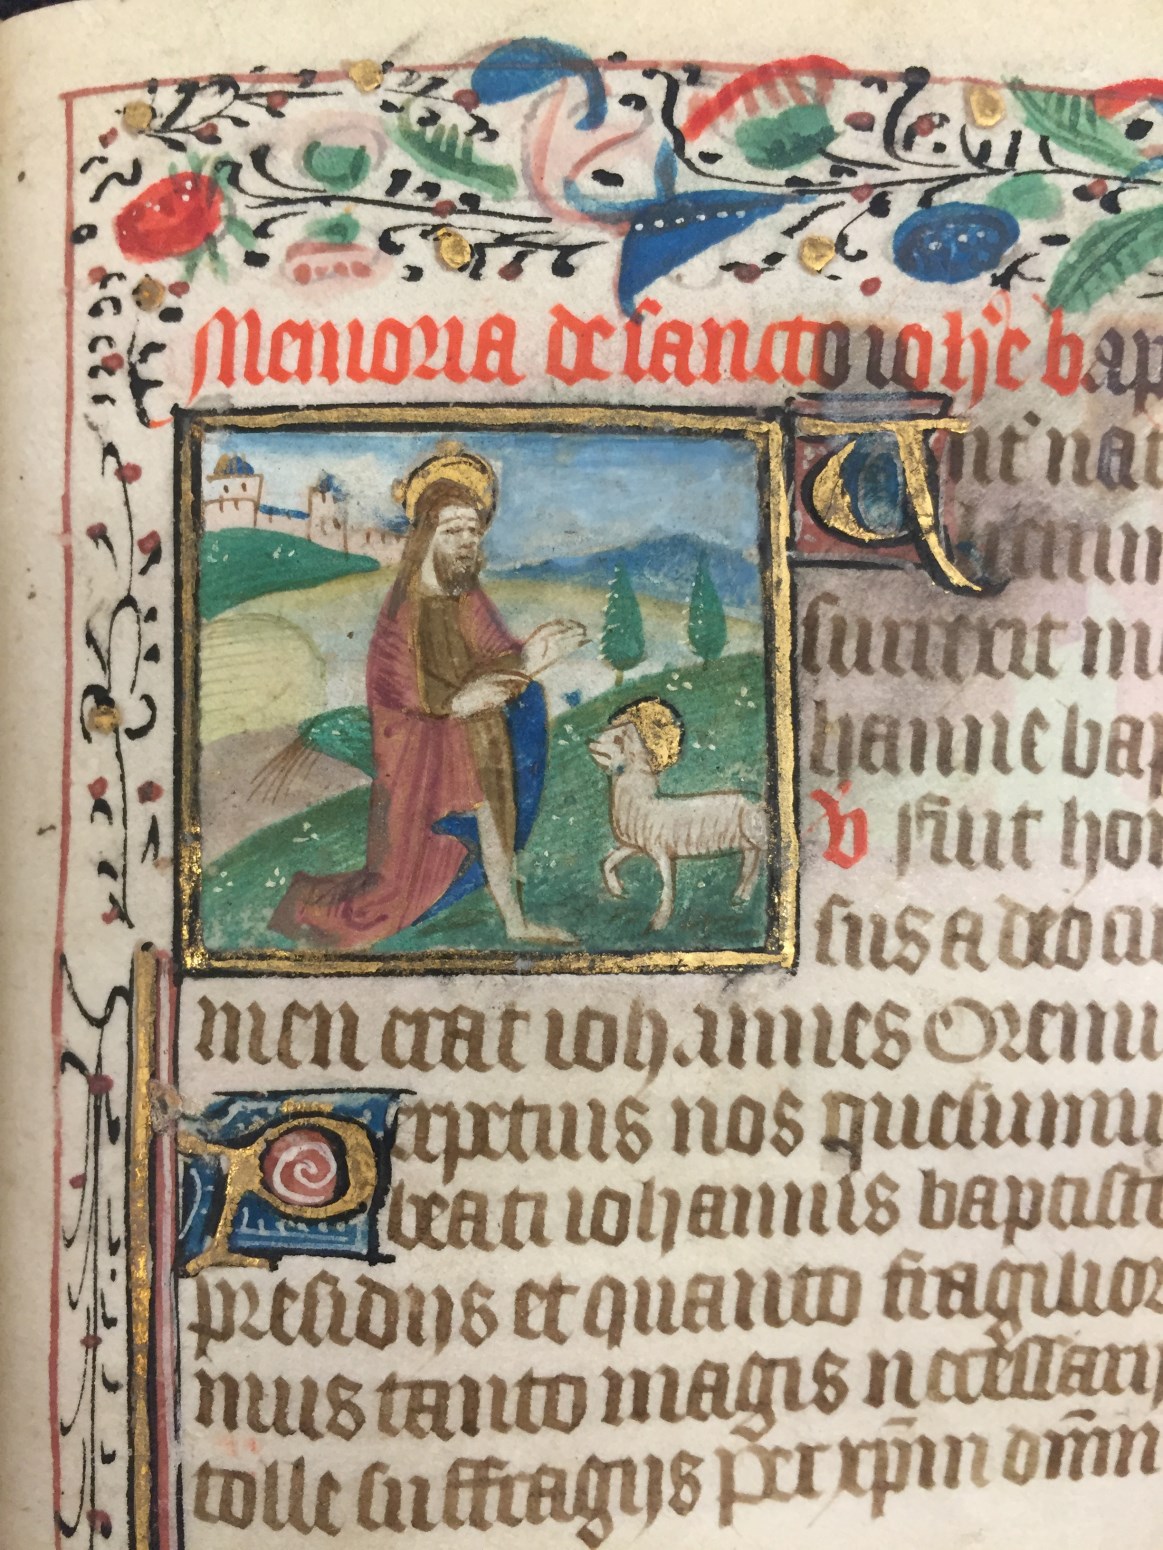 Memoria de sancto ioh̄e bap
Int' nat
surrexit m
hanne bap
V ffuit ho
sus a deo cu
men erat iohannes Oremu
Perpetuis nos quesumu
beati iohannis baptiste
presidijs et quanto fragilior
mus tanto magis necessarij
tolle suffragijs per xp̄m dom̄n